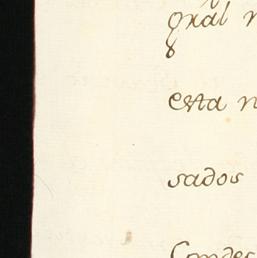 gral
esta n
sados
Condes